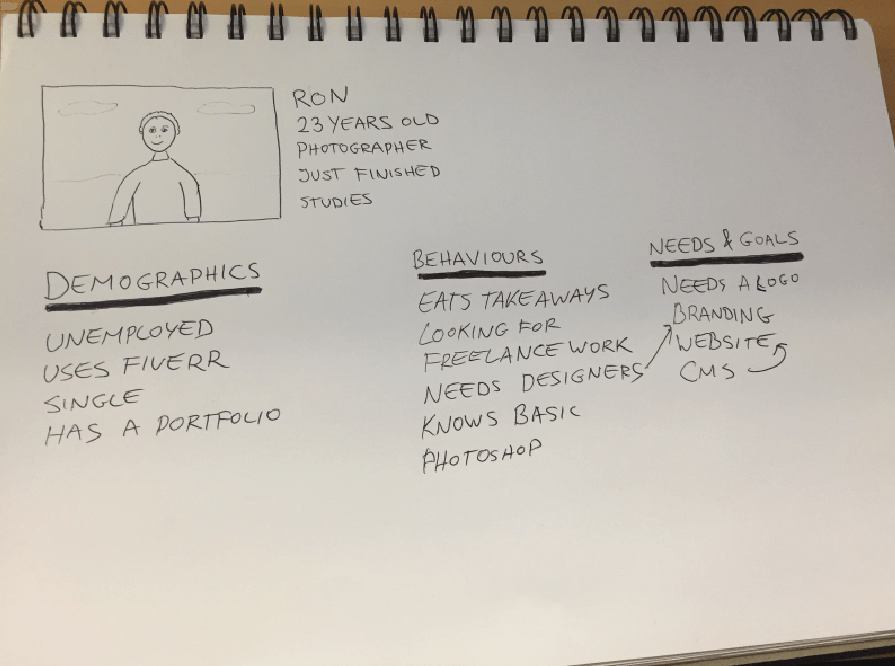 RON
23 YEARS OLD
PHOTOGRAPHER
JUST FINISHED
STUDIES
DEMOGRAPHICS
UNEMPLOYED
USES FIVERR
SINGLE
HAS A PORTFOLIO
BEHAVIOURS
EATS TAKEAWAYS
LOOKING FOR
FREELANCE WORK
NEEDS DESIGNERS
KNOWS BASIC
PHOTOSHOP
NEEDS & GOALS
NEEDS A LOGO
BRANDING
WEBSITE
CMS